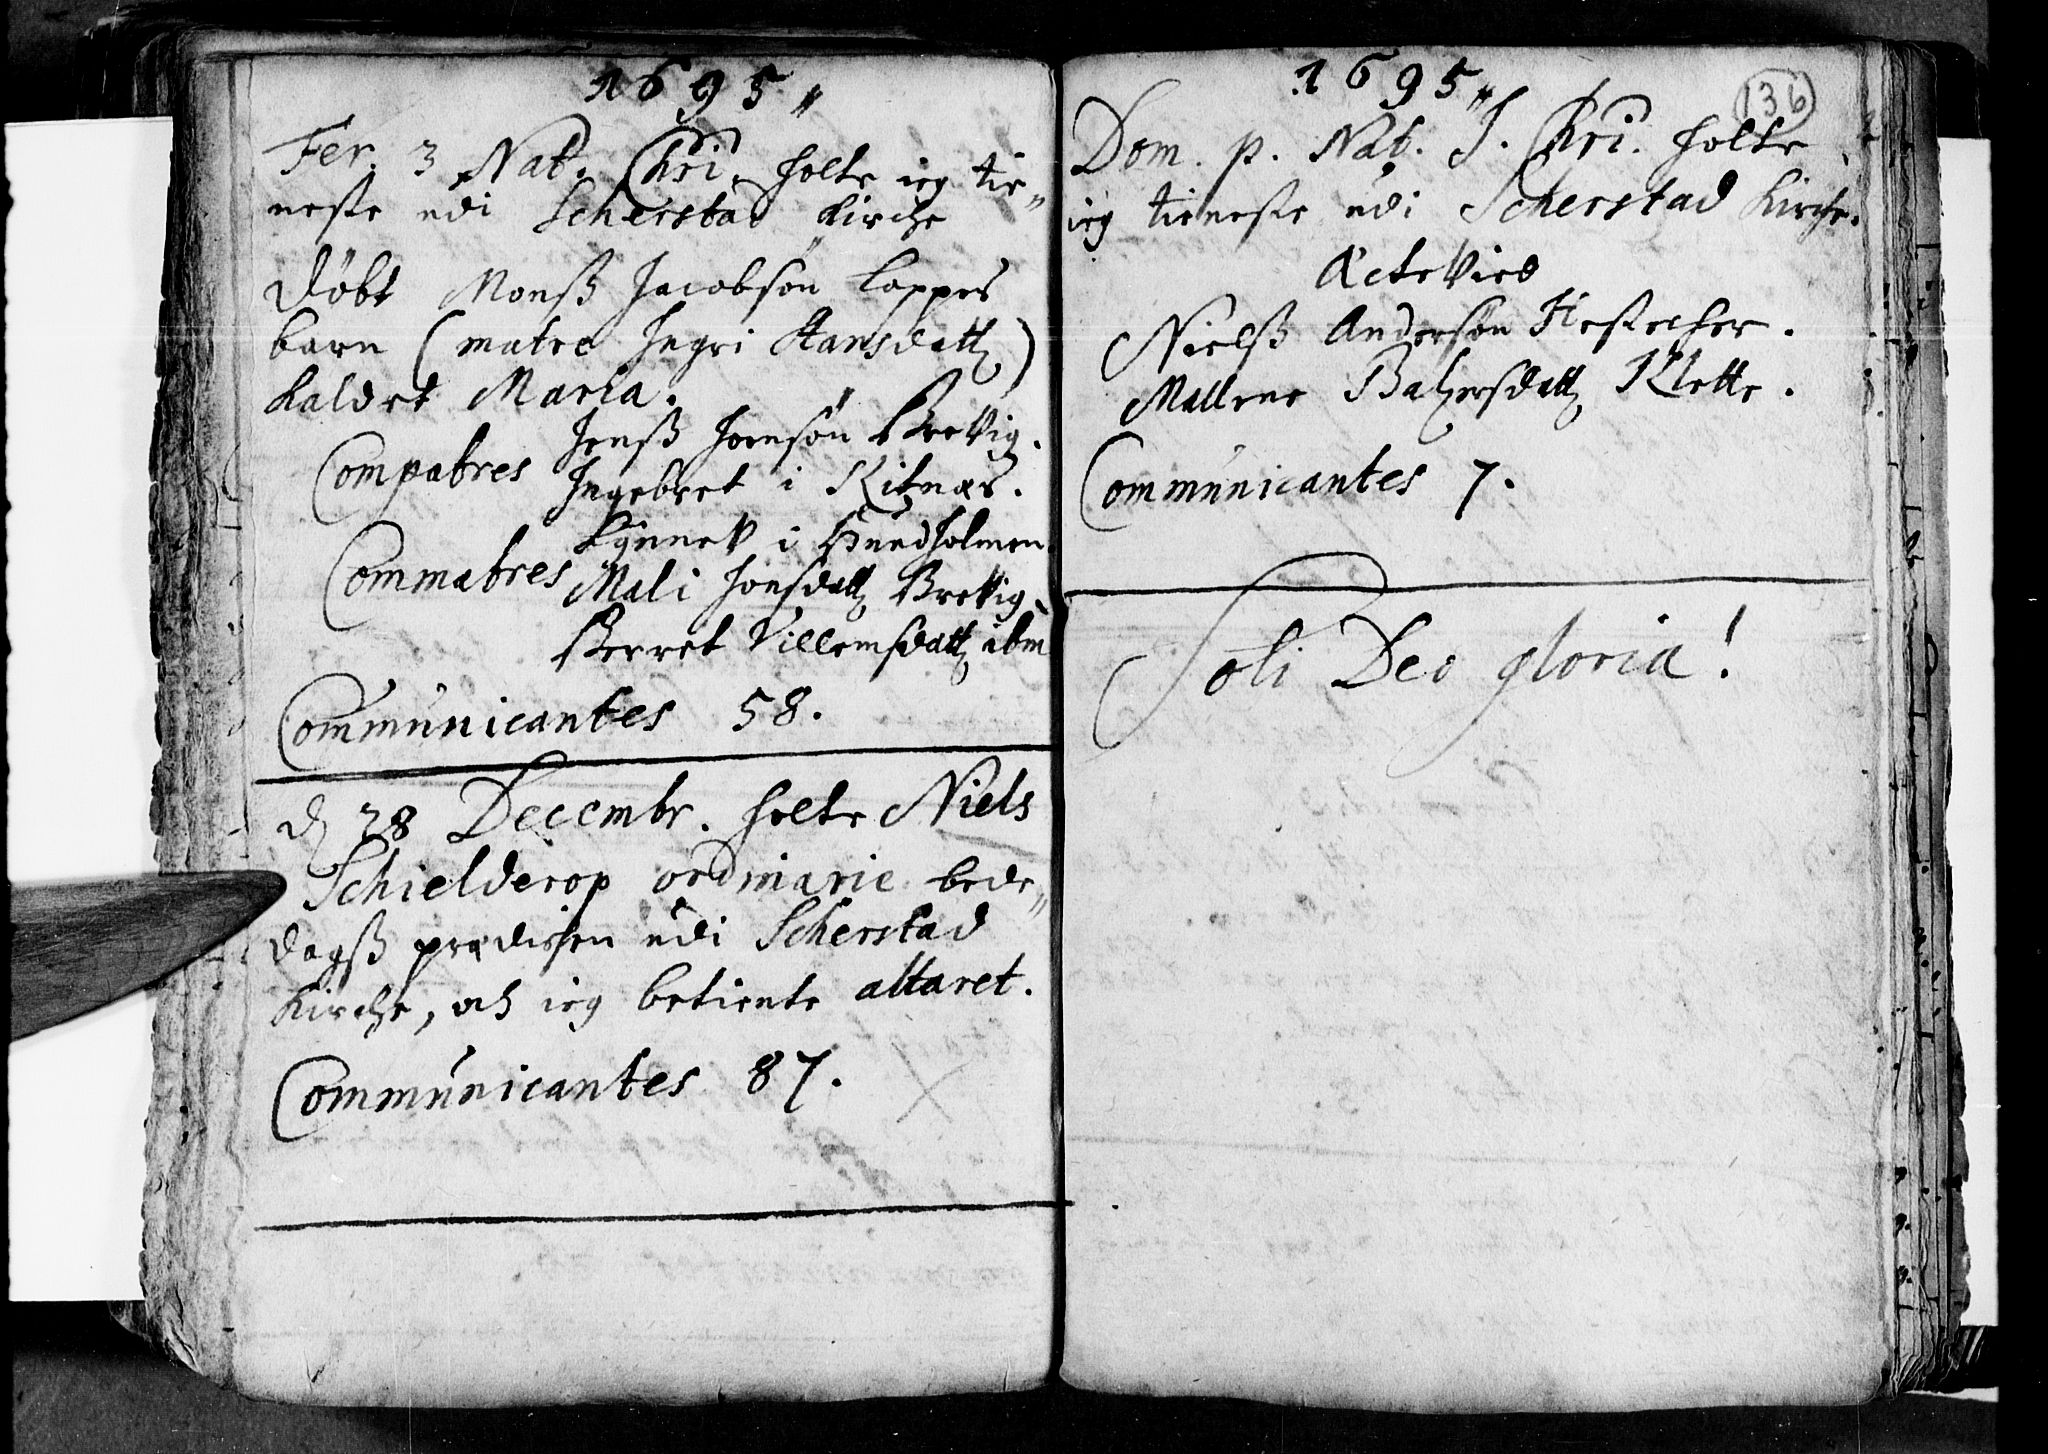 1695〃
Fer. 3 Nat. Chri. holte ieg tie〃
neste udi Scherstad Kirche
Døbt Monß Jacobsøn Loppes
barn (matre Ingri Hansdattʒ)
Kaldet Maria.
Jenß Joensøn BreVig.
Compatres Ingebret i Kitnæs.
KynneV i Hundholmen.
Commatres Mali Jonsdattʒ BreVig.
Berret Villemsdattʒ ibm
Communicantes 58.
dʒ 28 Decembr. holte Niels
Schielderop ordinarie bede〃
dagß prædichen udi Scherstad
Kirche, och ieg betiente altaret.
Communicantes 87.
1695〃
136
Dom. p. Nat. J. Chri. holte
ieg tieneste udi Scherstad Kirche.
ÆcteVied
Nielß Andersøn
Mallene Balzersdattʒ Klette.
Communicantes 7.
Soli Deo gloria!